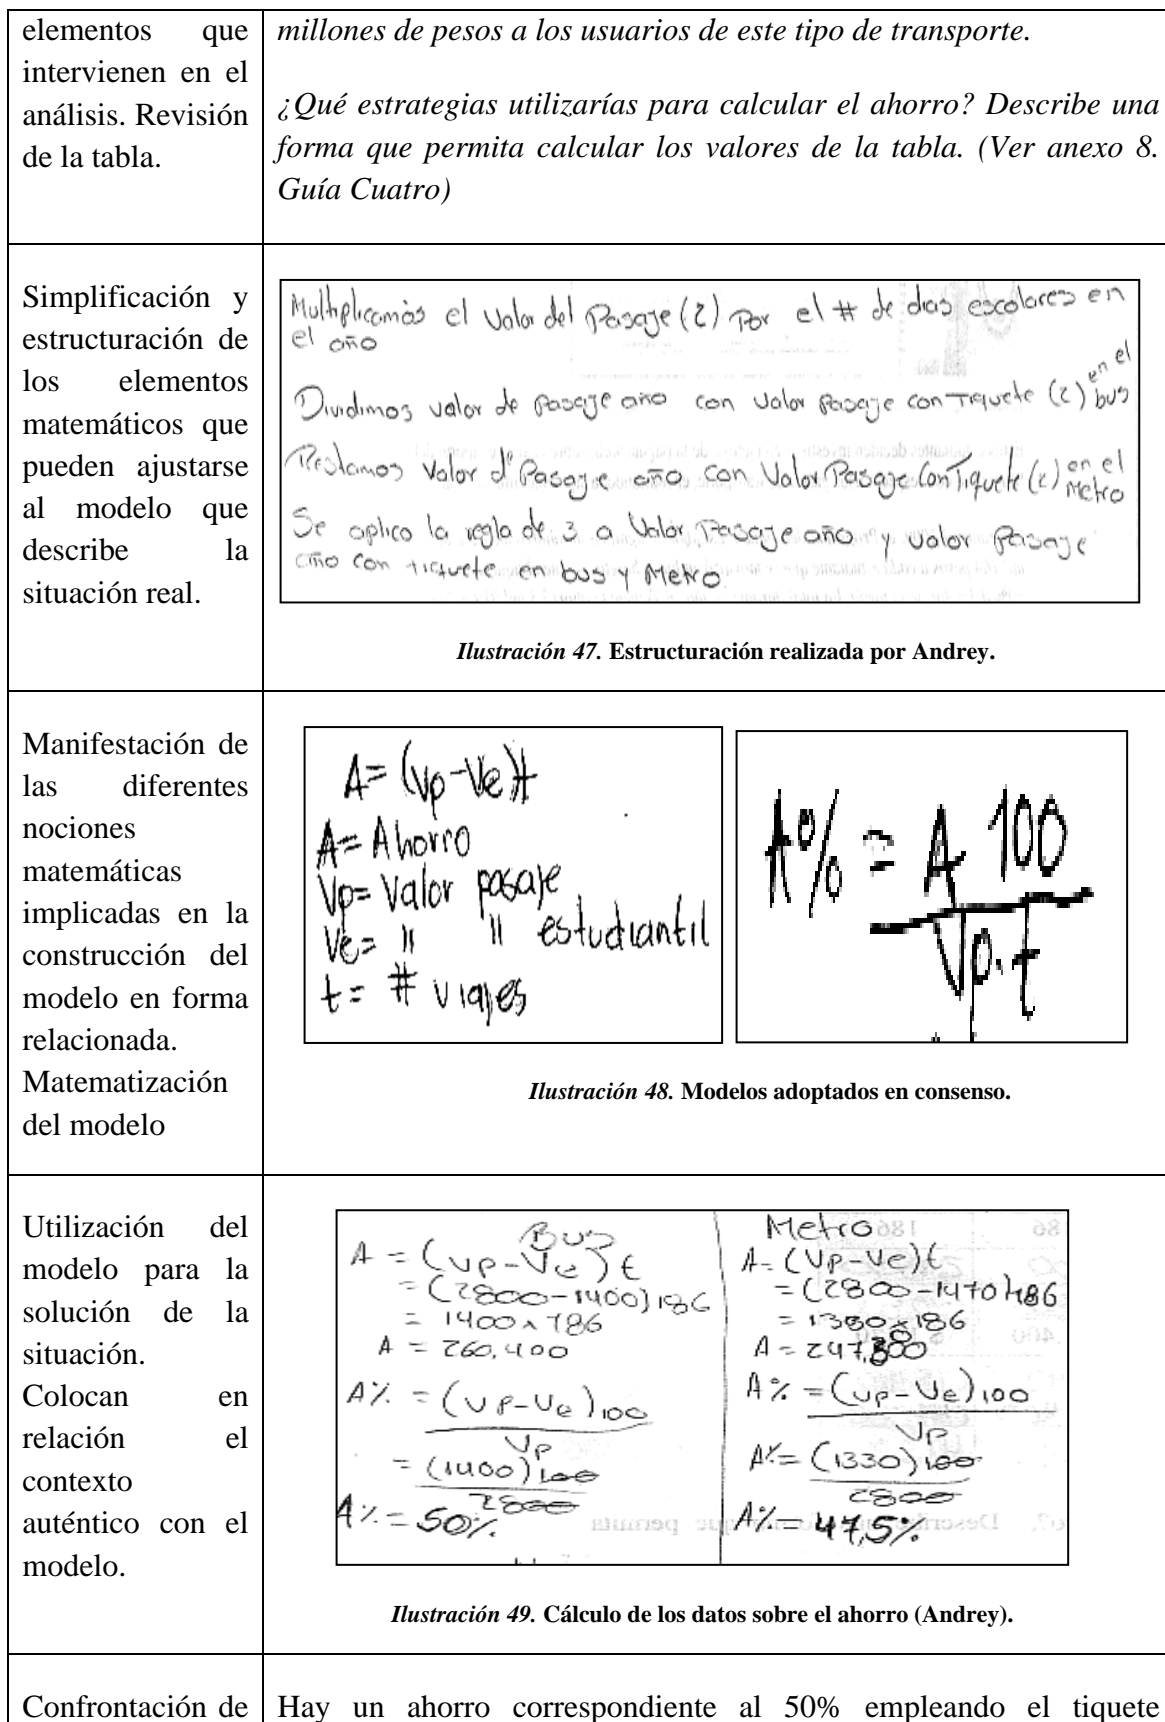 elementos que
intervienen en el
análisis. Revisión
de la tabla.
millones de pesos a los usuarios de este tipo de transporte.
¿Qué estrategias utilizarías para calcular el ahorro? Describe una
forma que permita calcular los valores de la tabla. (Ver anexo 8.
Guía Cuatro)
Simplificación y
estructuración de
los elementos
matemáticos que
pueden ajustarse
al modelo que
describe la
situación real.
Multiplicamos el valor del Pasaje (2) Por el # de dias escolares en
el año
Dividimos valor de pasaje año con valor pasaje con Tiquete (2) en el
bus
Restamos Valor d' Pasaje año con Valor Pasaje Con Tiquete (2) en el
Metro
Se aplico la regla de 3 a Valor Pasaje año y valor Pasaje
año con tiquete en bus y Metro.
Ilustración 47. Estructuración realizada por Andrey.
Manifestación de
las diferentes
nociones
matemáticas
implicadas en la
construcción del
modelo en forma
relacionada.
Matematización
del modelo
A= (Vp-Ve)t
A= Ahorro
Vp= Valor pasaje
Ve= " " estudiantil
t= # viajes
A% = A 100
Vp.t
Ilustración 48. Modelos adoptados en consenso.
Utilización del
modelo para la
solución de la
situación.
Colocan en
relación el
contexto
auténtico con el
modelo.
Bus
A = (Vp-Ve)t
= (2800-1400)186
= 1400 x 186
A = 260,400
A% = (Vp-Ve)100
Vp
= (1400)100
2800
A% = 50%
Metro
A= (Vp-Ve)t
= (2800-1470)186
= 1330x186
A = 247,300
A% = (Vp-Ve)100
Vp
A%= (1330)100
2800
A%= 47,5%
Ilustración 49. Cálculo de los datos sobre el ahorro (Andrey).
Confrontación de
Hay un ahorro correspondiente al 50% empleando el tiquete